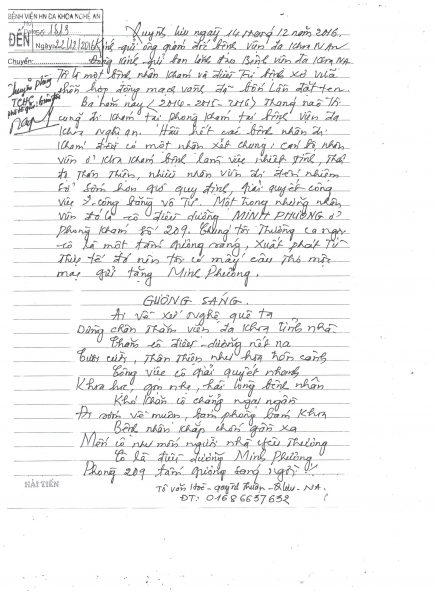 BỆNH VIỆN HN ĐA KHOA NGHỆ AN
ĐẾN
Số: 1813
Ngày: 22/12/2016
Chuyển:
Chuyển Phòng
TCHC
Quỳnh Lưu ngày 14 tháng 12 năm 2016.
Kính gửi ông giám đốc bệnh viện đa khoa N An
Đồng kính gửi ban lãnh đạo Bệnh viện đa khoa NA
Tôi là một bệnh nhân khám và điều trị bệnh xơ vữa
hẹp động mạch vành đã bốn lần đặt ten.
Ba năm nay (2014-2015-2016) tháng nào tôi
cũng đi khám tại phòng khám tại bệnh viện đa
khoa nghệ an. Hầu hết các bệnh nhân đi
khám đều có một nhận xét chung: cán bộ nhân
viên ở khoa khám bệnh làm việc nhiệt tình, thái
độ thân thiện, nhiều nhân viên đi đến nhiệm
sở sớm hơn giờ quy định, giải quyết công
việc công bằng vô tư. Một trong những nhân
viên đó là cô điều dưỡng MINH PHƯƠNG ở
phòng khám số 209. Chúng tôi thường ca ngợi
cô là một tấm gương sáng, xuất phát từ
thực tế đó nên tôi có mấy câu thơ mộc
mạc gửi tặng Minh Phương.
GƯƠNG SÁNG.
Ai về xứ nghệ quê ta
Dừng chân thăm viện đa khoa tỉnh nhà
Thăm cô điều dưỡng nết na
Tươi cười, thân thiện như hoa trên cành
Công việc cô giải quyết nhanh
Khoa học, gọn nhẹ, hài lòng bệnh nhân
Khó khăn cô chẳng ngại ngần
Đi sớm về muộn, bám phòng bám khoa
Bệnh nhân khắp chốn gần xa
Mến cô như mến người nhà yêu thương
Cô là điều dưỡng Minh Phương
Phòng 209 tấm gương sáng ngời!
HẢI TIẾN
Tô văn - Quỳnh - Q Lưu - NA.
ĐT: 01686637632